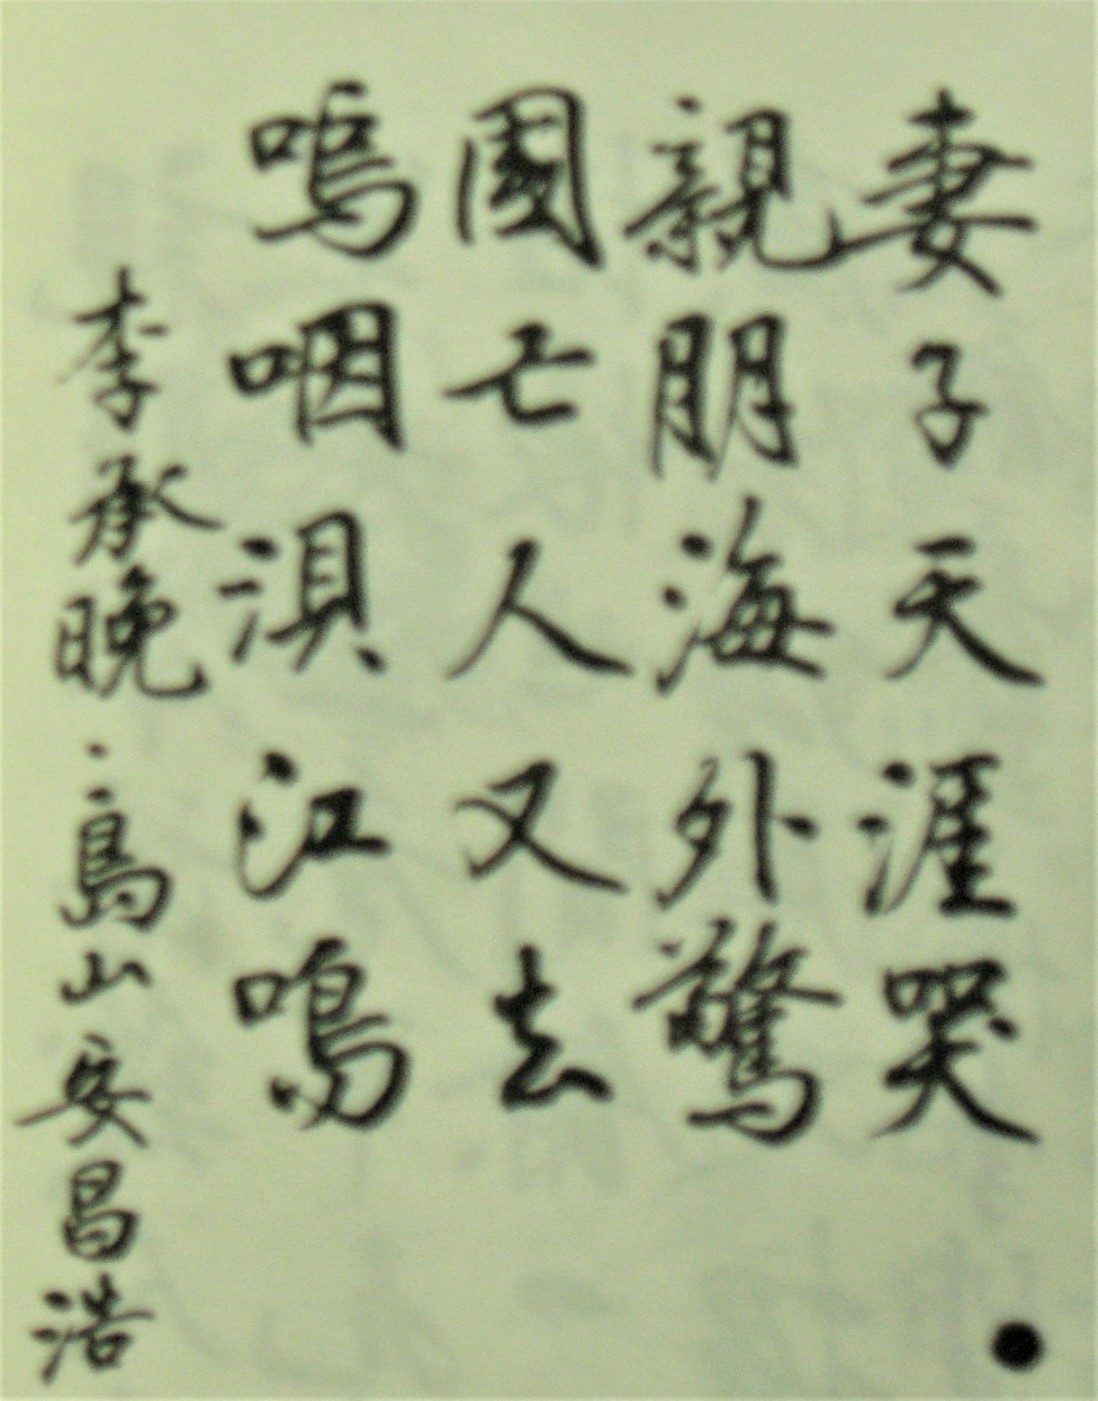 妻子天涯哭
親朋海外驚
國亡人又去
嗚咽浿江鳴
李承晚 : 島山安昌浩